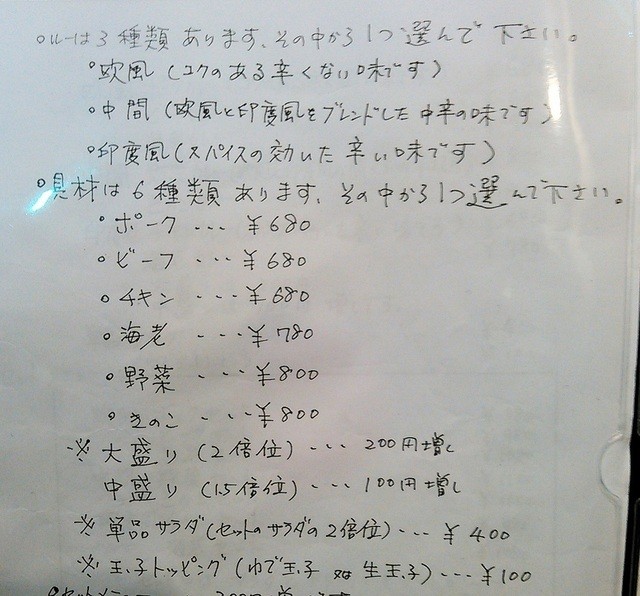 ○ルーは3種類あります、その中から1つ選んで下さい。
○欧風(コクのある辛くない味です)
○中間(欧風と印度風をブレンドした中辛の味です)
○印度風(スパイスの効いた辛い味です)
○具材は6種類あります、その中から1つ選んで下さい。
○ポーク・・・¥680
○ビーフ・・・¥680
○チキン・・・¥680
○海老・・・¥780
○野菜・・・¥800
○きのこ・・・¥800
※大盛り(2倍位)・・・200円増し
中盛り(1.5倍位)・・・100円増し
※単品サラダ(セットのサラダの2倍位)・・・¥400
※玉子トッピング(ゆで玉子 又は 生玉子)・・・¥100